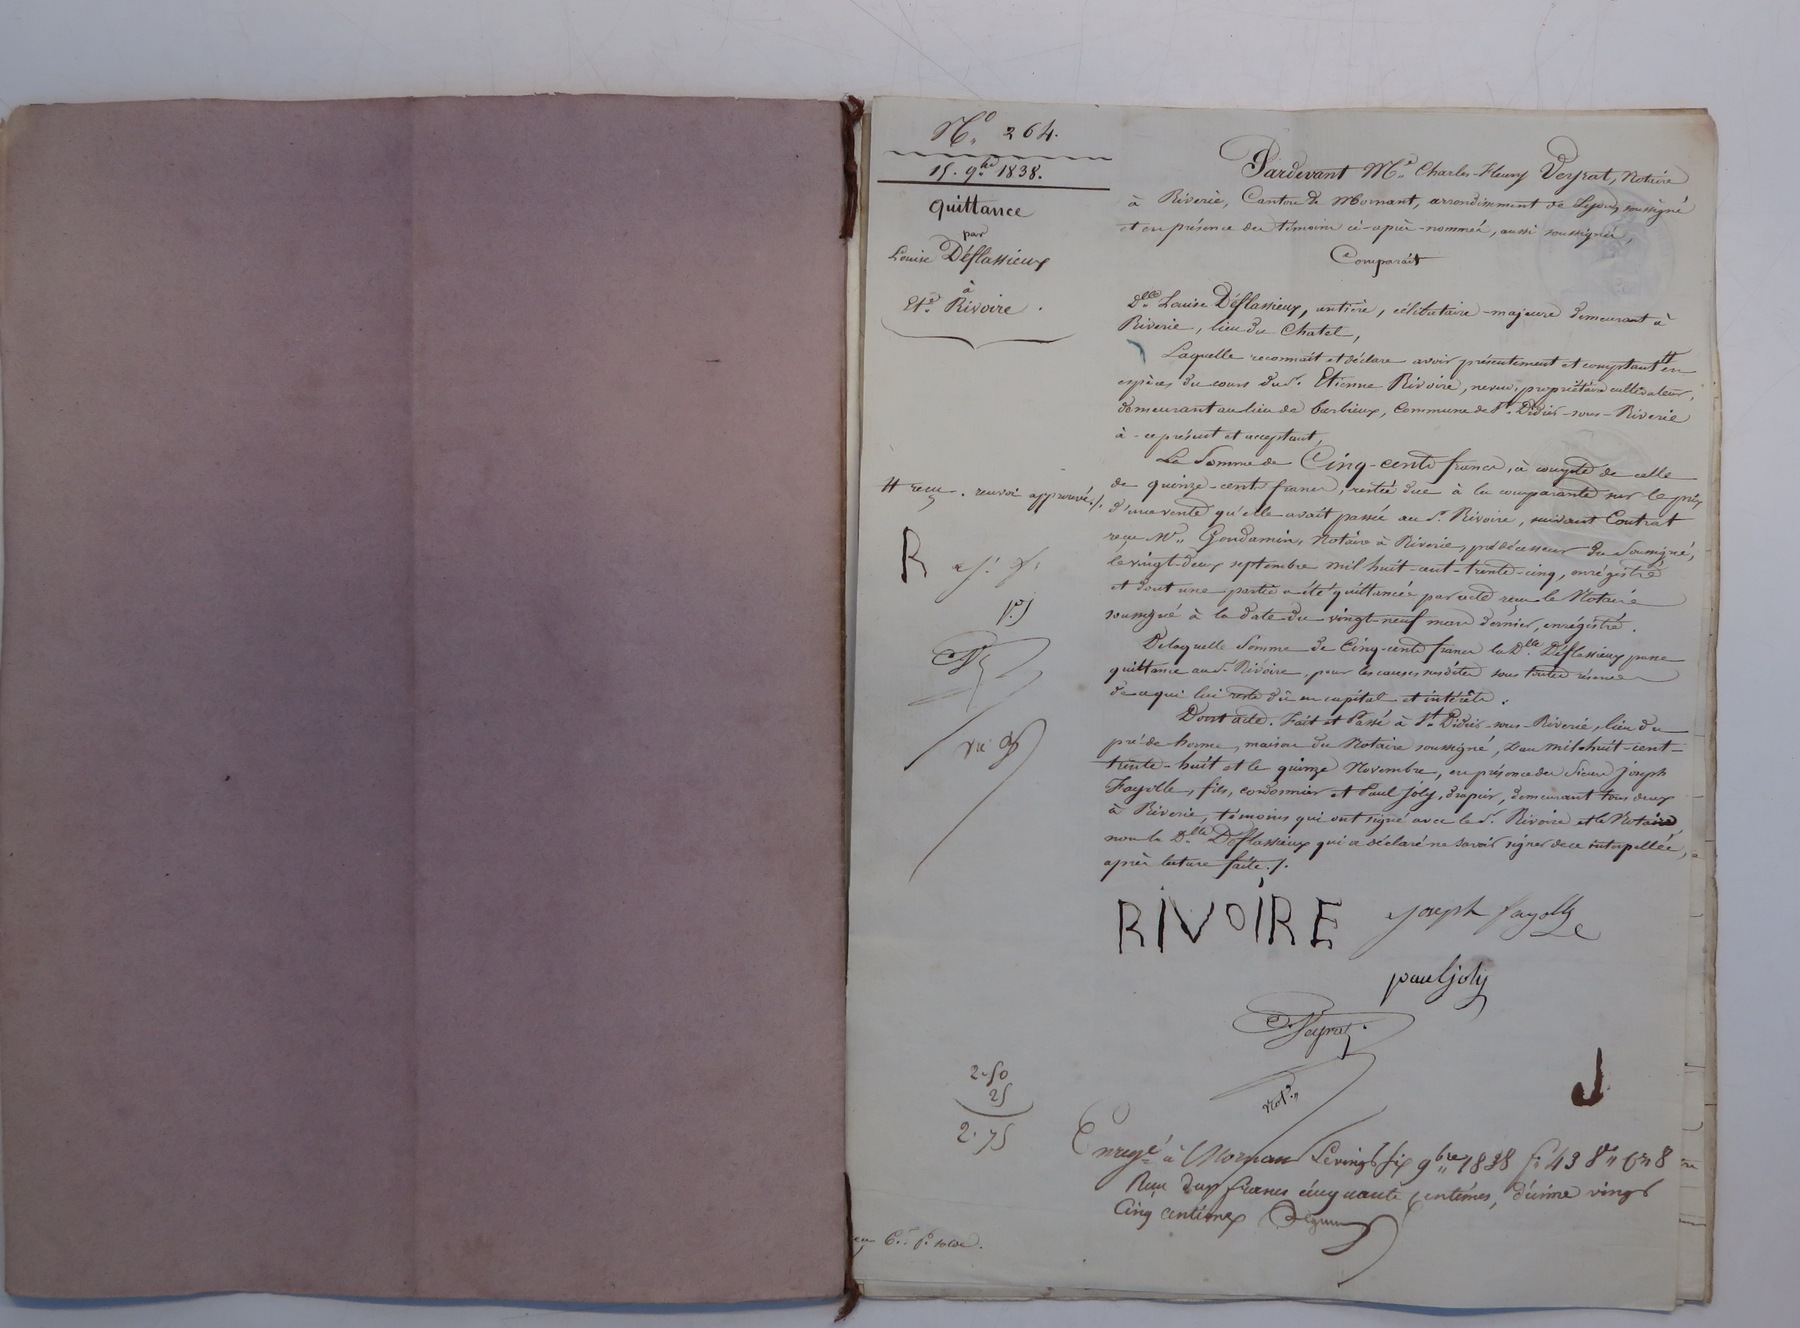 N.o 264.
15. 9.bre 1838.
Quittance
par
Louise Déflassieux
à
Et.e Rivoire.
Pardevant M.e Charles-Fleury Veyrat, Notaire
à Riverie, Canton de Mornant, arrondissement de Lyon, soussigné
et en présence des témoins ci-après-nommés, aussi soussignés,
Comparait
D.lle Louise Déflassieux, rentière, célibataire-majeure demeurant à
Riverie, lieu du Chatel,
Laquelle reconnait et déclare avoir présentement et comptant # en
espèces du cours du S.r Etienne Rivoire, neveu, propriétaire cultivateur,
demeurant au lieu de Corbieux, Commune de S.t Didier-sous-Riverie
à-ce présent et acceptant,
La Somme de Cinq-cents francs, à compte de celle
de quinze-cents francs, restée due à la comparante sur le prix
d'une vente qu'elle avait passée au S.r Rivoire, suivant Contrat
reçu M.e Gondamin, Notaire à Riverie, prédécesseur du Soussigné,
le vingt-deux septembre mil huit-cent-trente-cinq, enrégistré
et dont une partie a été quittancée par acte reçu le Notaire
soussigné à la date du vingt-neuf mars dernier, enrégistré.
De laquelle Somme de Cinq-cents francs la D.lle Déflassieux passe
quittance au S.r Rivoire, pour les causes susdites sous toutes réserves
de ce qui lui reste dû en capital et intérêts.
Dont acte. Fait et Passé à S.t Didier-sous-Riverie, lieu du
pré de horme, maison du Notaire soussigné, L'an mil-huit-cent-
trente-huit et le quinze Novembre, en présence des Sieurs Joseph
Fayolle, fils, cordonnier et Paul Joly, drapier, demeurant tous deux
à Riverie, témoins qui ont signé avec le S.r Rivoire et le Notaire
non la D.lle Déflassieux qui a déclaré ne savoir signer de ce interpellée,
après lecture faite./.
# reçu. renvoi approuvé./.
R J. f.
p.J
RIVOIRE Joseph fayolle
paul joly
Veyrat
not.re
2.50
25
2.75
Enreg.é à Mornant Le vingt six 9bre 1838 f.o 43 R.o C.s 8
Reçu deux francs cinquante centimes, décime vingt
Cinq centimes